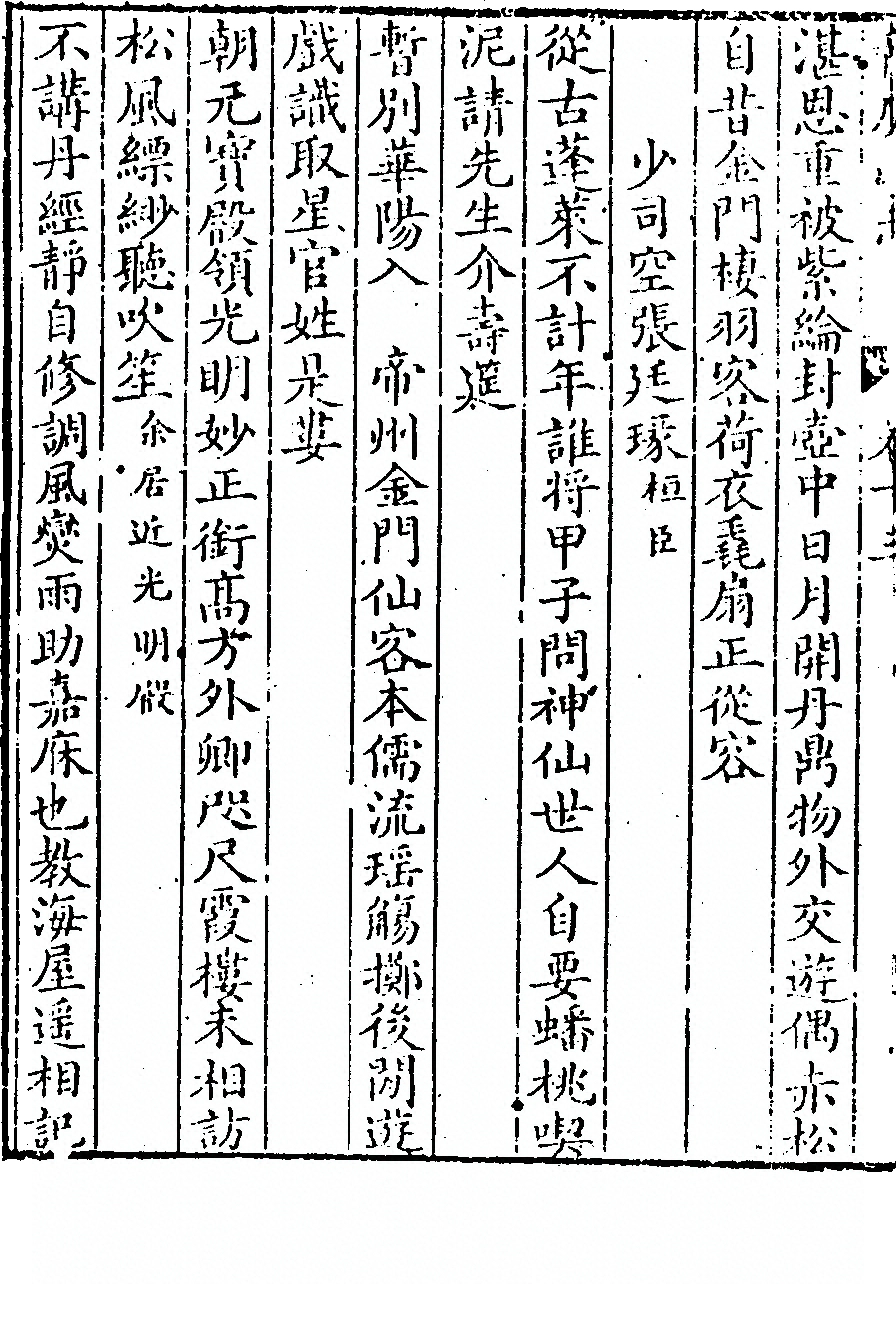 湛恩重被紫綸封壺中日月開丹鼎物外交遊偶赤松
自昔金門棲羽客荷衣毳扇正從容
少司空張廷瑑桓臣
從古蓬萊不計年誰將甲子問神仙世人自要蟠桃喫
泥請先生介壽筵
暫別華陽入　帝州金門仙客本儒流瑶觴擲後閒遊
戲識取星官姓是婁
朝元寶殿領光明妙正銜高方外卿咫尺霞樓未相訪
松風縹緲聽吹笙余居近光明殿
不講丹經靜自修調風燮雨助嘉庥也教海屋遥相記